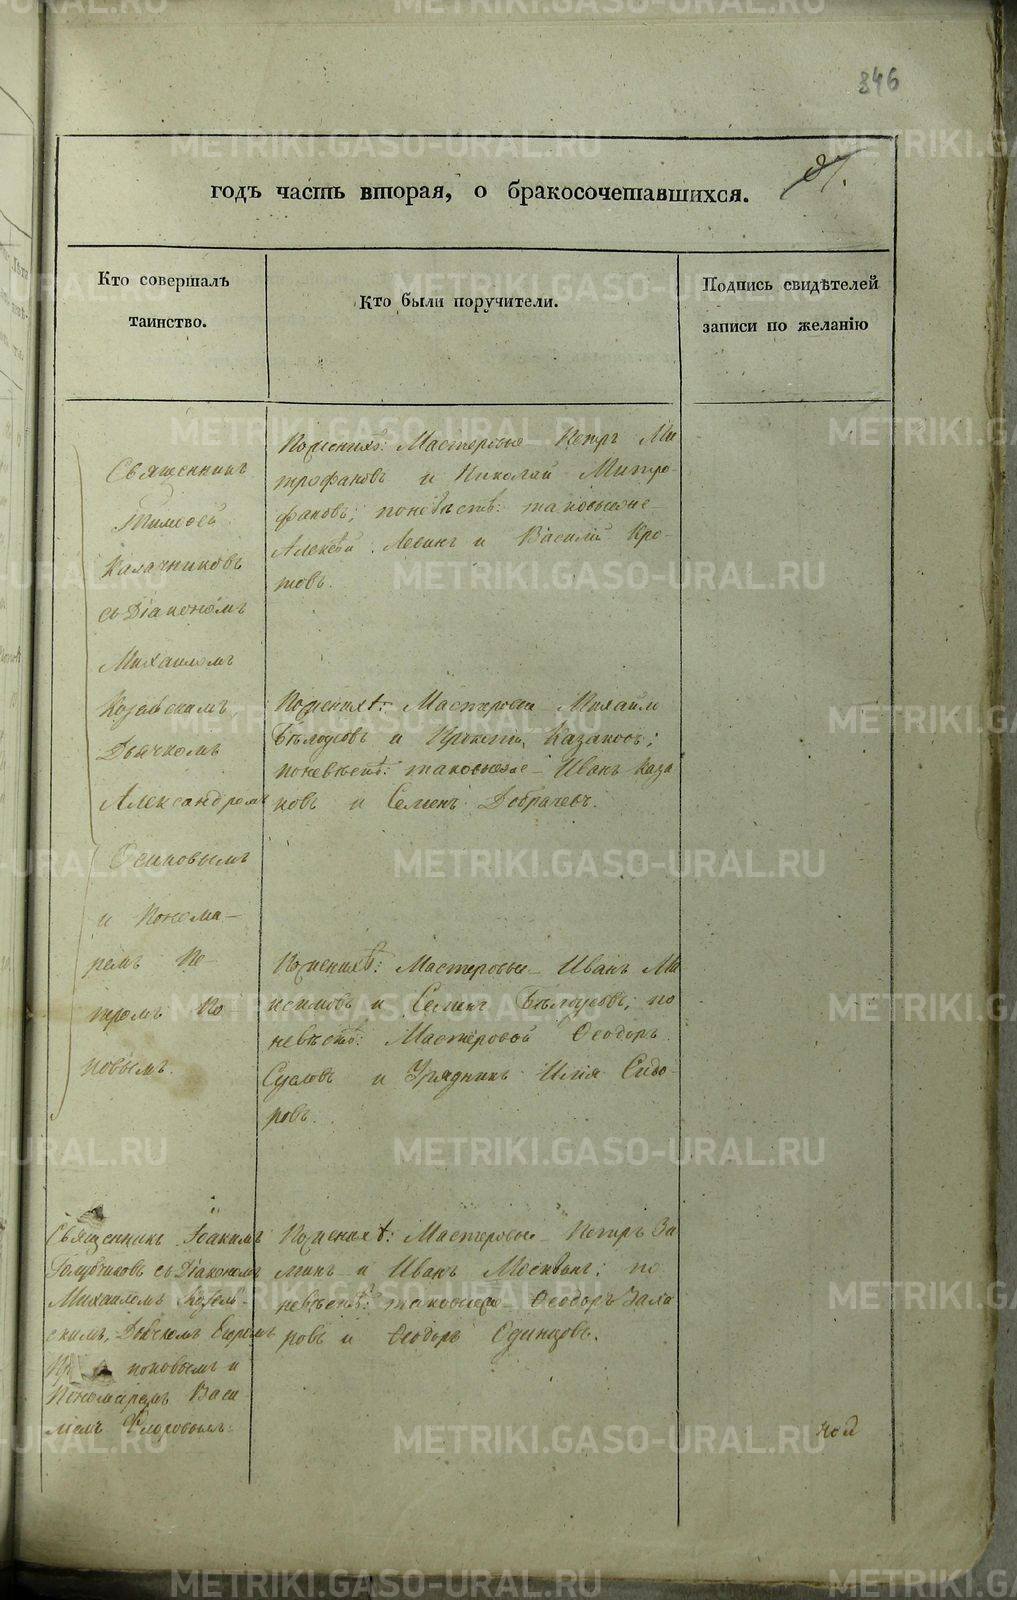 346
годъ часть вторая, о бракосочетавшихся.
Кто совершалъ
таинство.
Кто были поручители.
Подпись свидѣтелей
записи по желанію
Священникъ
Тимоѳей
Калачниковъ
съ Діакономъ
Михаиломъ
Козельскимъ,
Дьячкомъ
Александромъ
Осиповымъ
и Понома-
ремъ Пе-
тромъ По-
повымъ.
Пожених: Мастеровые Петръ Ми
трофановъ и Николай Митро-
фановъ; поневѣстѣ: таковыеже
Алексѣй и Василій Кро-
товъ.
Поженихѣ: Мастеровые Михайло
Бѣлоусовъ и Казаковъ;
поневѣстѣ: таковыеже Иванъ Каза
ковъ и Семенъ
Поженихѣ: Мастеровые Иванъ
и Семенъ Бѣлоусовъ; по
невѣстѣ: Мастеровой Ѳеодоръ
Сусловъ и Урядникъ Илія Сидо-
ровъ.
Священникъ Іоакимъ
съ Діакономъ
Михаиломъ Козель-
скимъ,
поповымъ и
Пономаремъ Васи
Поженихѣ: Мастеровые Петръ За
и Иванъ Москвинъ; по
невѣстѣ: таковыеже Ѳеодоръ Заха
ровъ и Ѳеодоръ Одинцовъ.
METRIKI.GASO-URAL.RU